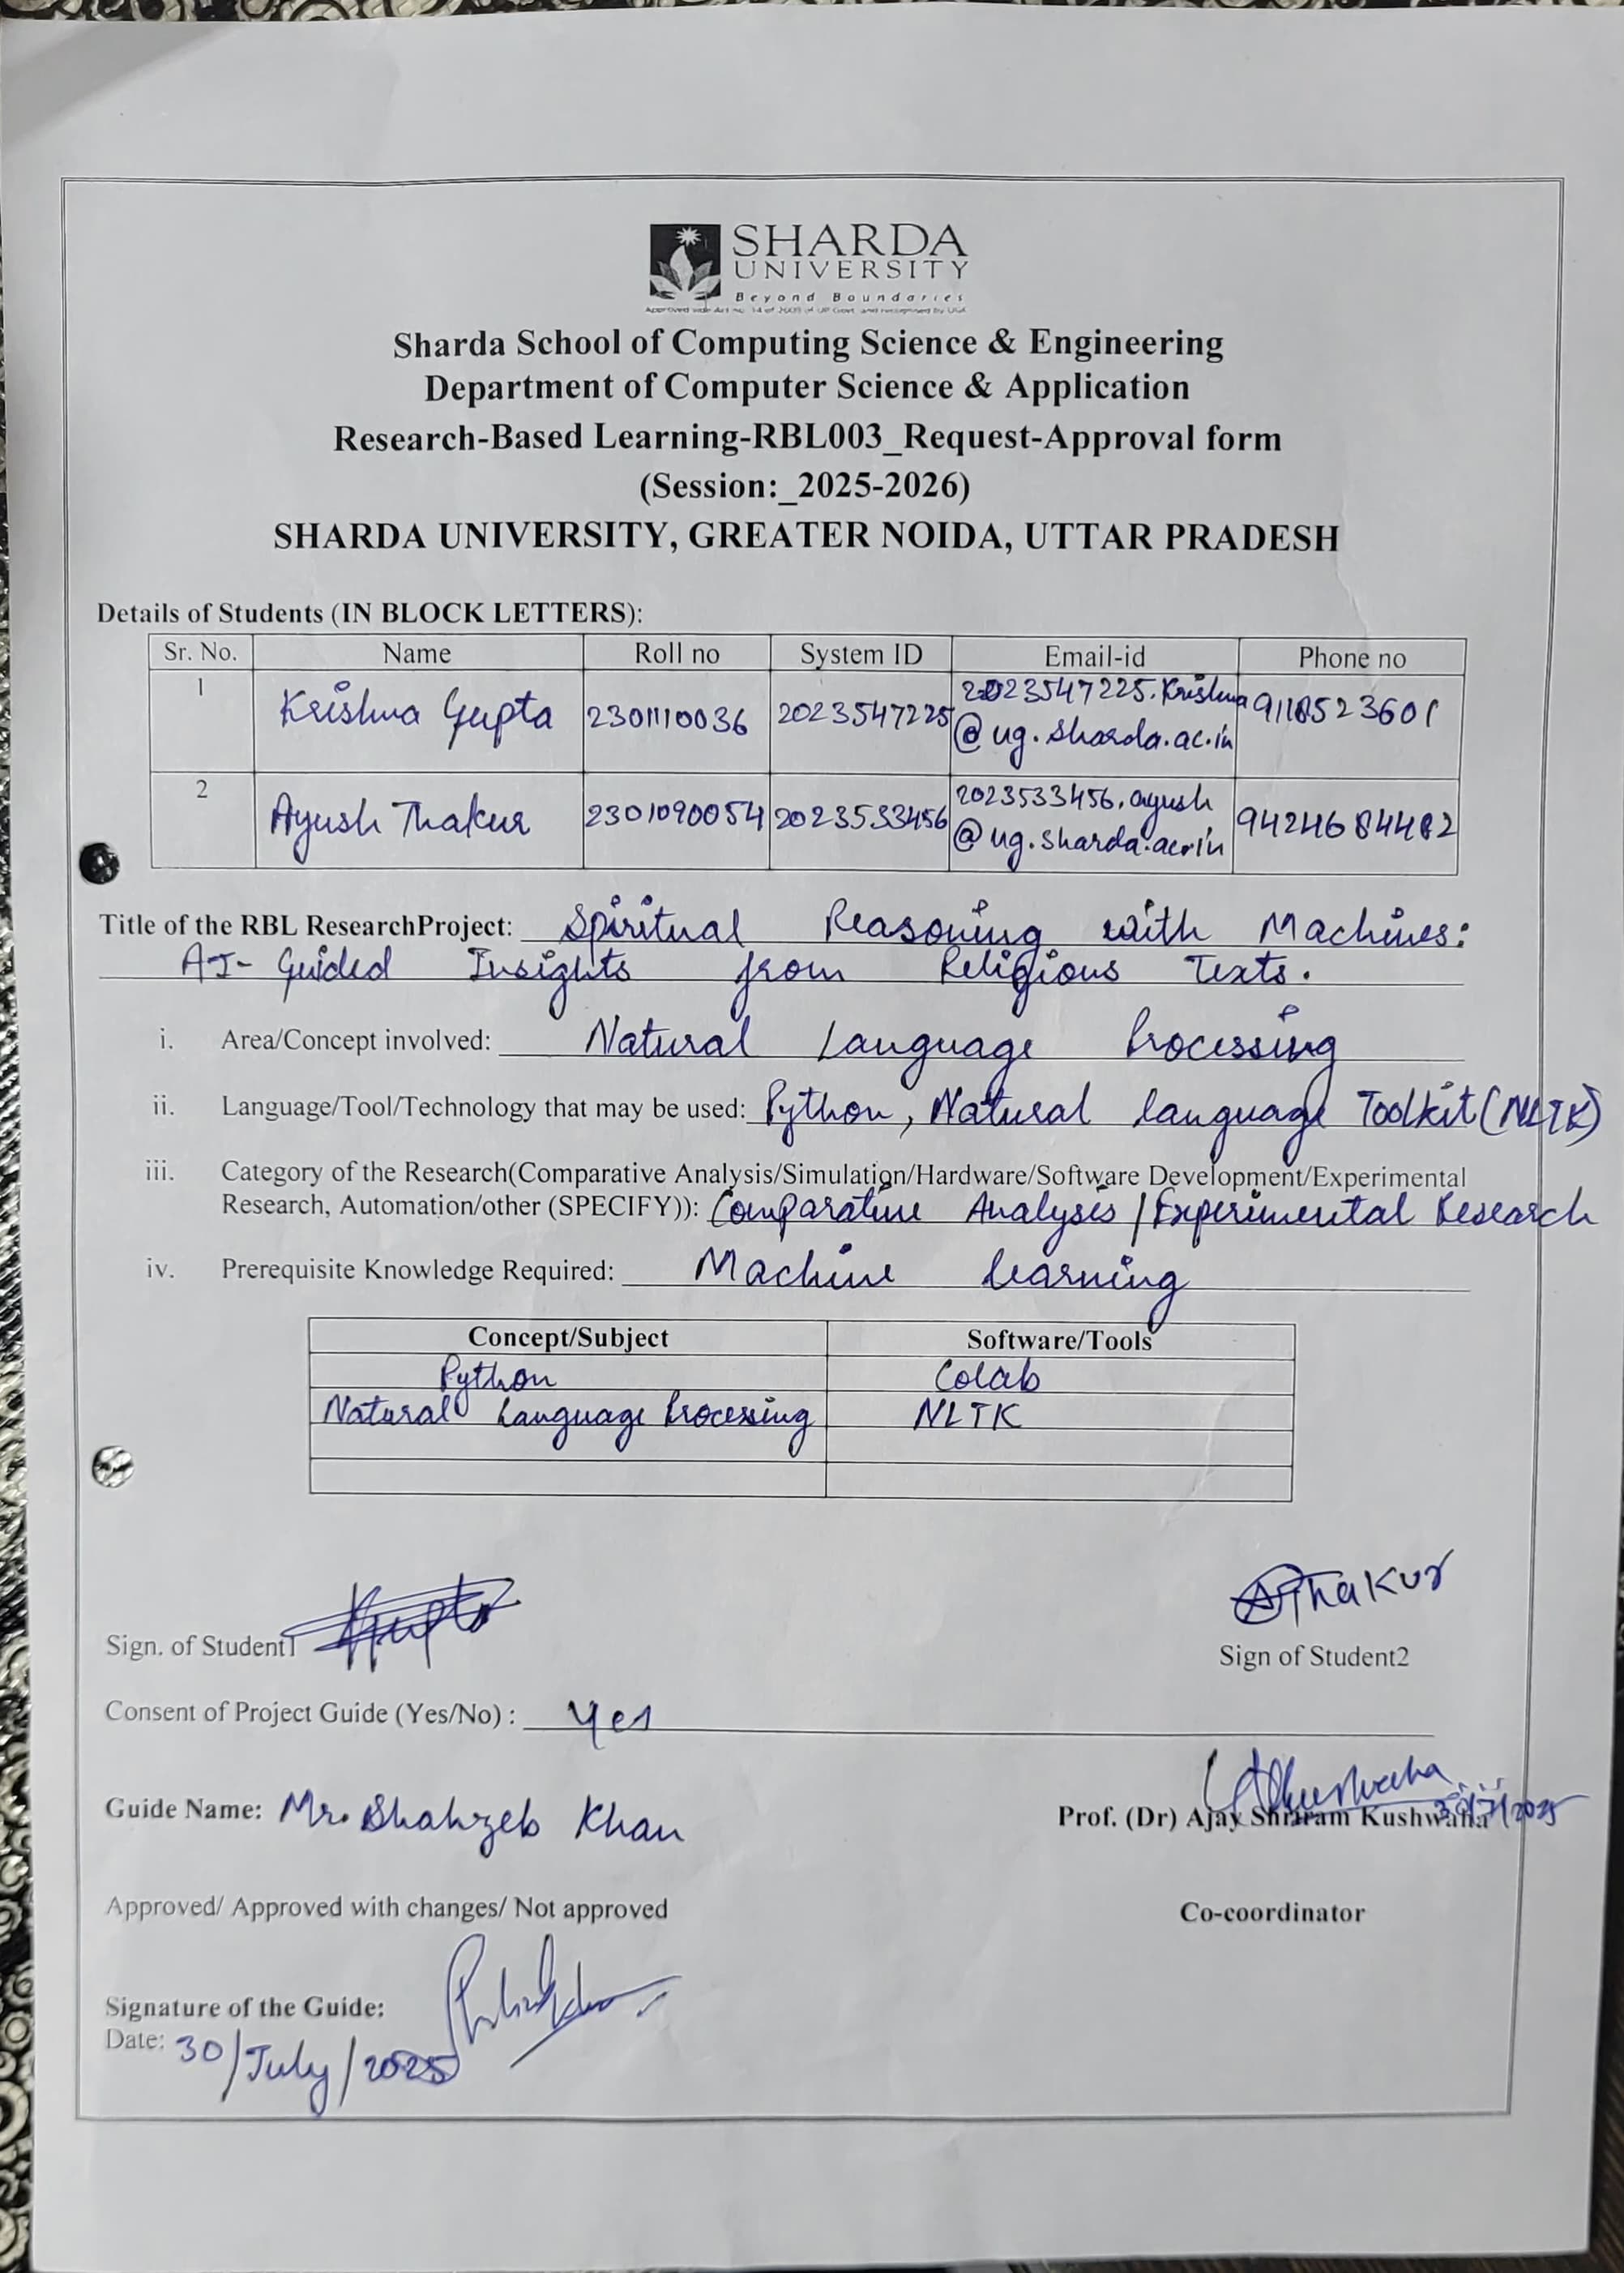 SHARDA
UNIVERSITY
Beyond Boundaries
Approved vide Act no. 14 of 2009 of UP Govt. and recognised by UGC
Sharda School of Computing Science & Engineering
Department of Computer Science & Application
Research-Based Learning-RBL003_Request-Approval form
(Session:_2025-2026)
SHARDA UNIVERSITY, GREATER NOIDA, UTTAR PRADESH
Details of Students (IN BLOCK LETTERS):
Sr. No. Name Roll no System ID Email-id Phone no
1 Krishna Gupta 2301110036 2023547225 2023547225.Krishna
@ug.sharda.ac.in
2 Ayush Thakur 2301090054 2023533456 2023533456.ayush
@ug.sharda.ac.in
Title of the RBL ResearchProject: Spiritual Reasoning with Machines:
AI-Guided Insights from Religious Texts.
i. Area/Concept involved: Natural Language Processing
ii. Language/Tool/Technology that may be used: Python, Natural language Toolkit (NLTK)
iii. Category of the Research(Comparative Analysis/Simulation/Hardware/Software Development/Experimental
Research, Automation/other (SPECIFY)): Comparative Analysis / Experimental Research
iv. Prerequisite Knowledge Required: Machine learning
Concept/Subject Software/Tools
Python Colab
Natural Language Processing NLTK
Thakur
Sign. of Student1 Gupta
Sign of Student2
Consent of Project Guide (Yes/No) : Yes
Guide Name: Mr. Shahzeb Khan
Prof. (Dr) Ajay Shriram Kushwaha 30/7/2025
Approved/ Approved with changes/ Not approved
Co-coordinator
Signature of the Guide:
Date: 30/July/2025